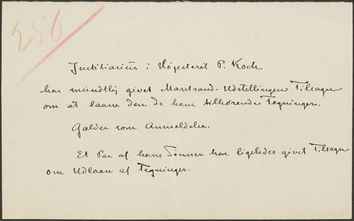 250
Justitiarius i Høiesteret P. Koch
har mundtlig givet Marstrand-Udstillingen Tilsagn
om at laane den de ham tilhørende Tegninger.
Gælder som Anmeldelse.
Et Par af hans Sønner har ligeledes givet Tilsagn
om Udlaan af Tegninger.